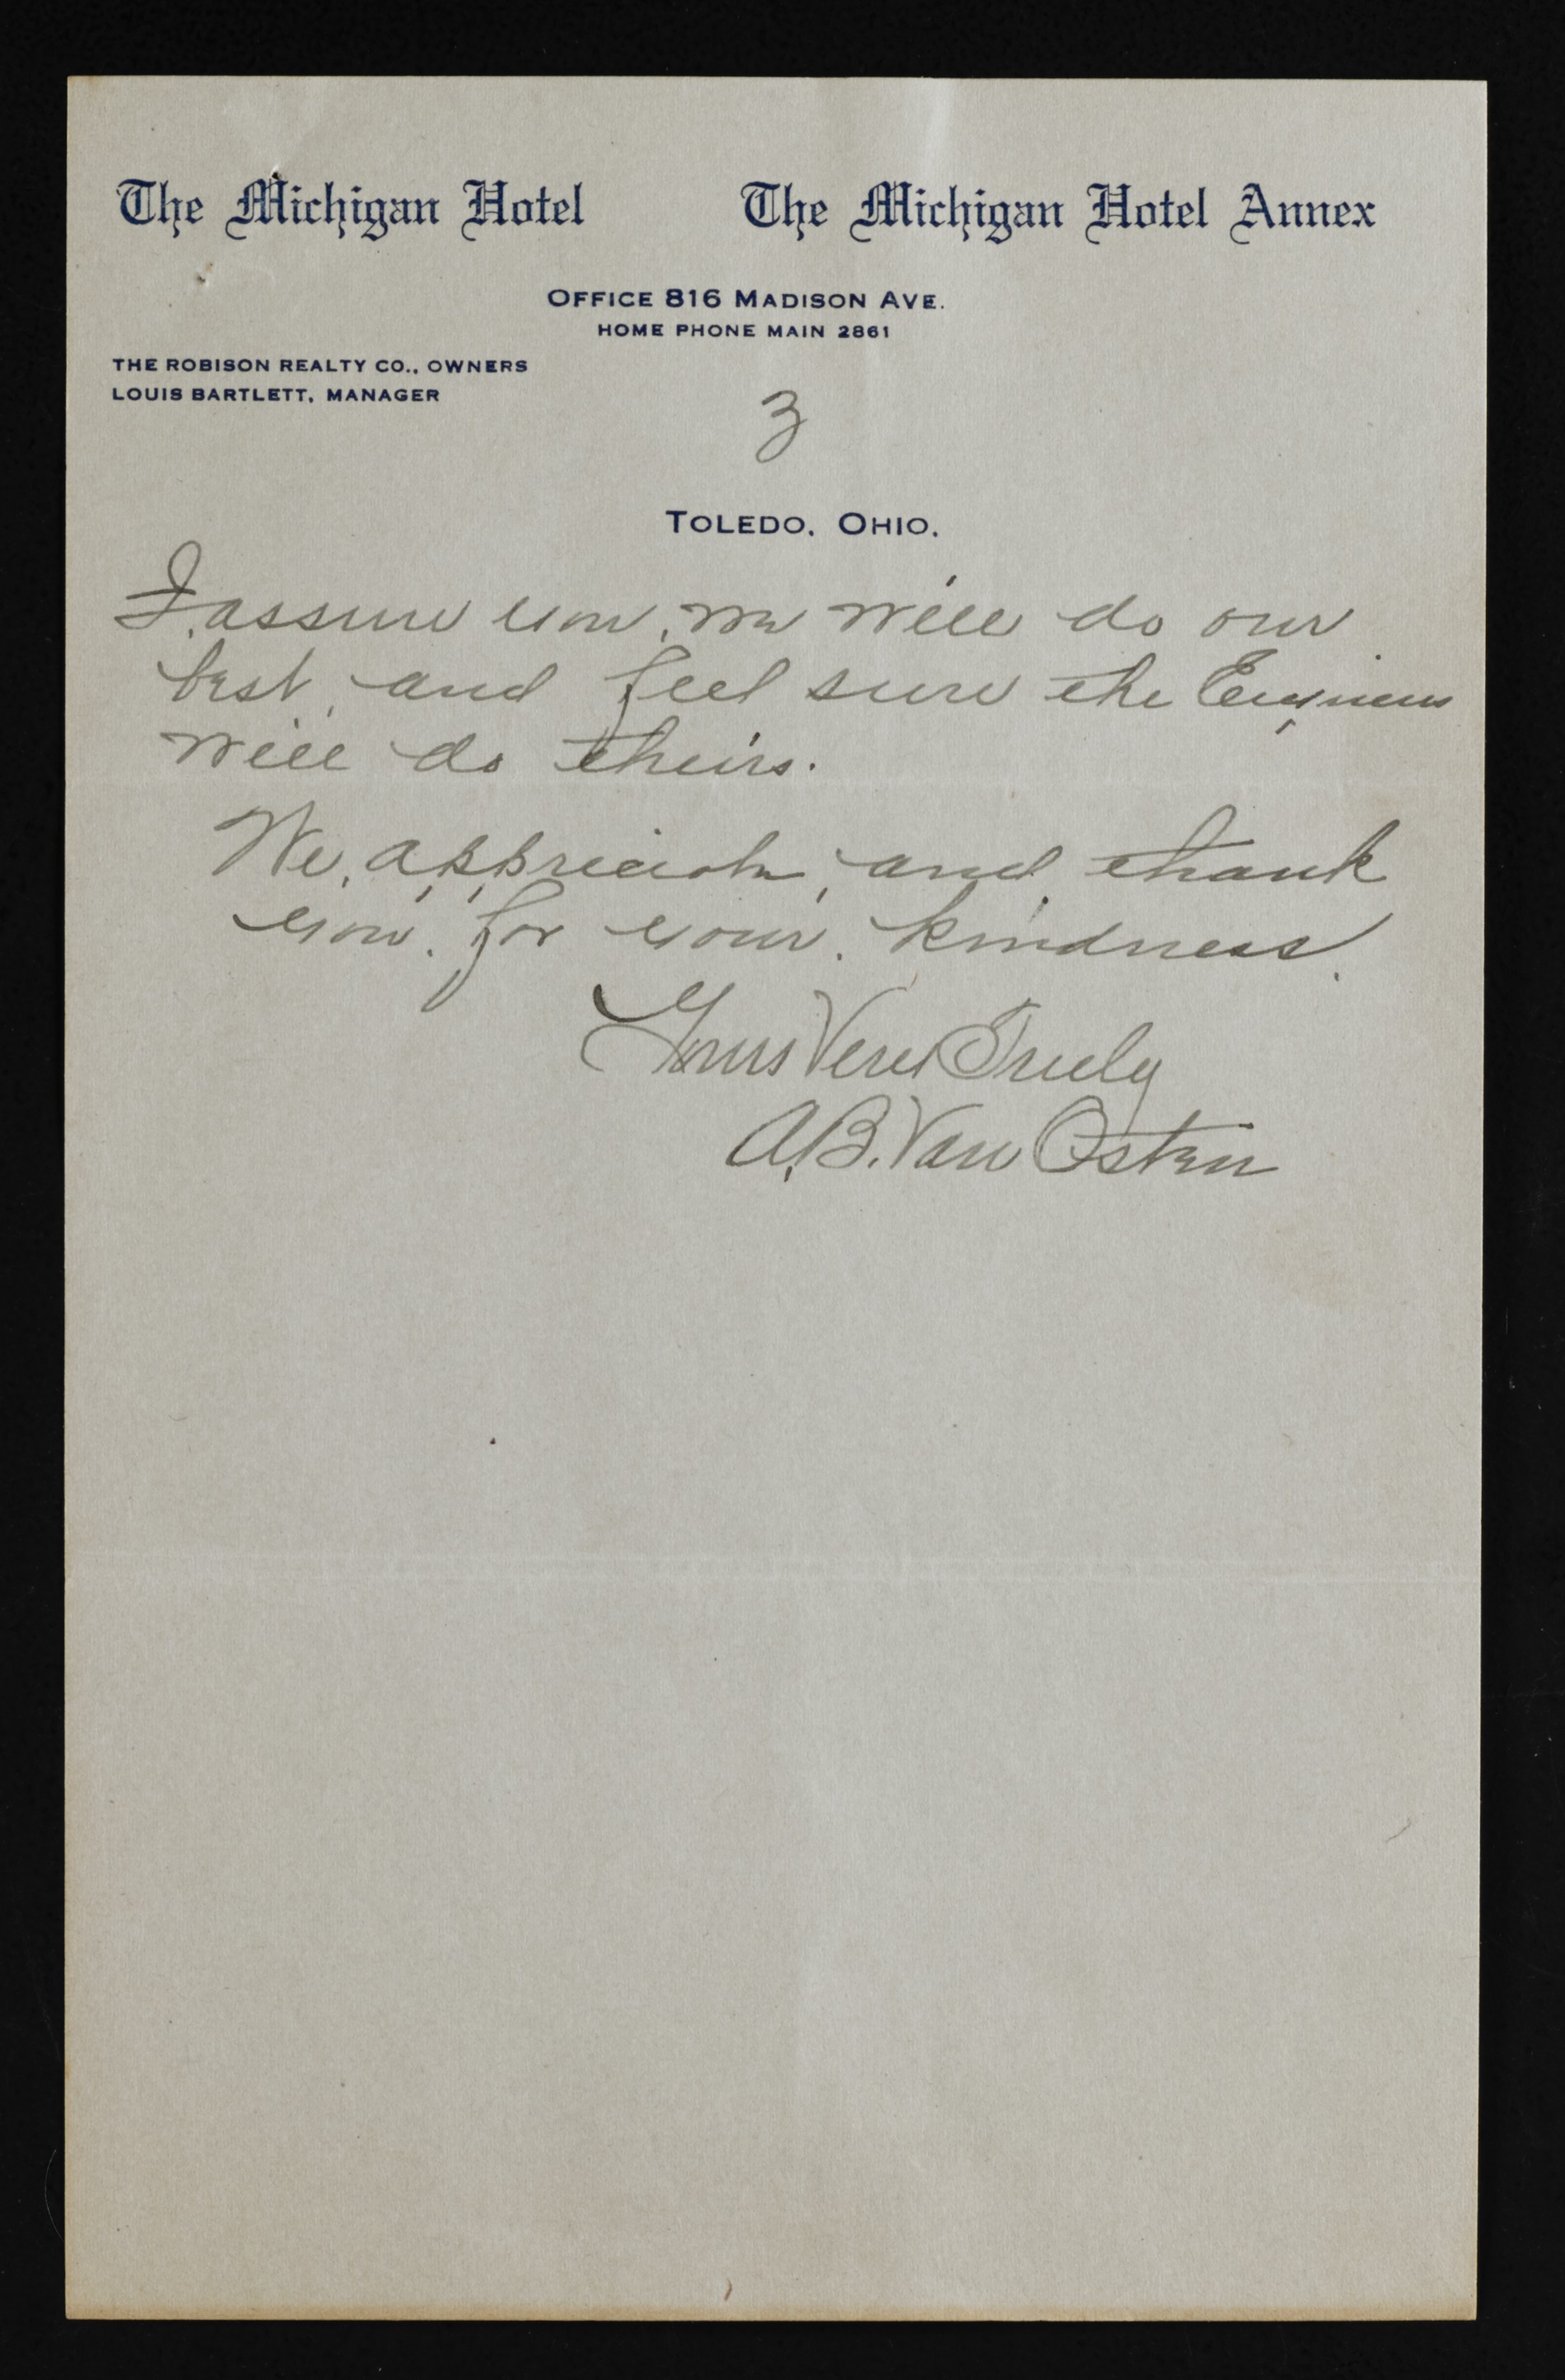 The Michigan Hotel The Michigan Hotel Annex
OFFICE 816 MADISON AVE.
HOME PHONE MAIN 2861
THE ROBISON REALTY CO., OWNERS
LOUIS BARTLETT, MANAGER
3
TOLEDO, OHIO.
I assure you, we will do our
best, and feel sure the Engineers
will do theirs.
We, appreciate, and thank
you. for your. kindness.
Yours Very Truely
A.B. Van Osten